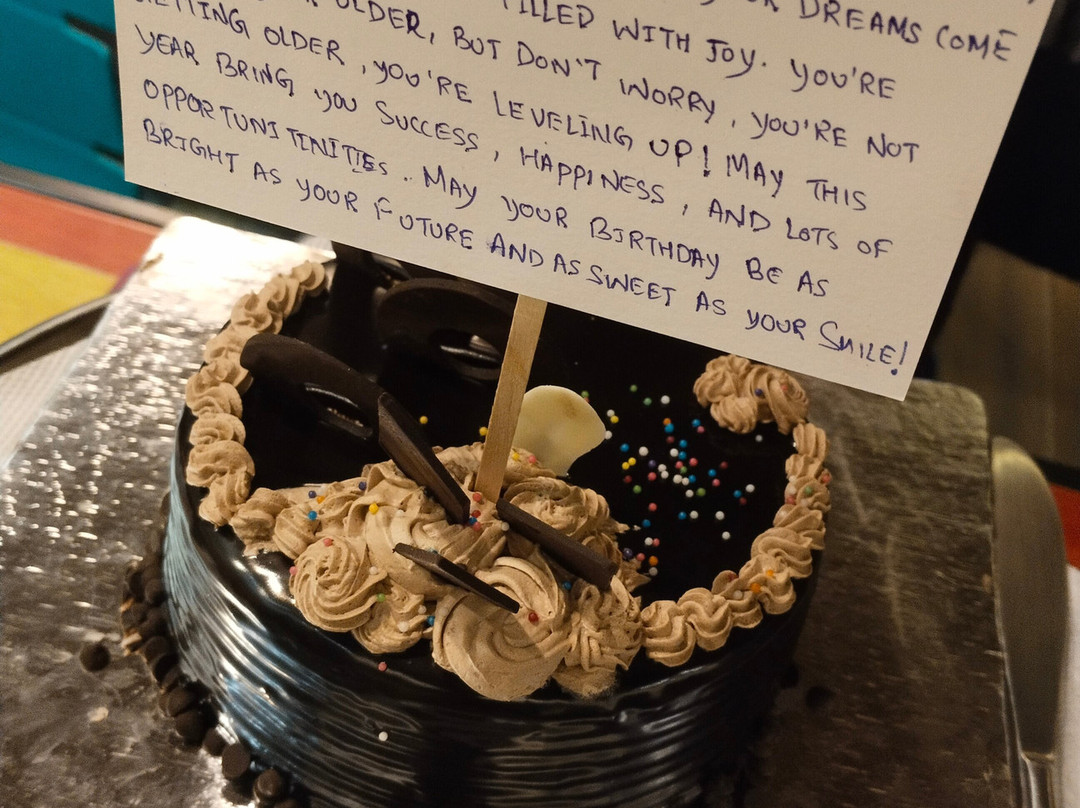 DREAMS COME
FILLED WITH JOY. YOU'RE
OLDER, BUT DON'T WORRY, YOU'RE NOT
GETTING OLDER, YOU'RE LEVELING UP! MAY THIS
YEAR BRING YOU SUCCESS, HAPPINESS, AND LOTS OF
OPPORTUNITINITIES. MAY YOUR BIRTHDAY BE AS
BRIGHT AS YOUR FUTURE AND AS SWEET AS YOUR SMILE!